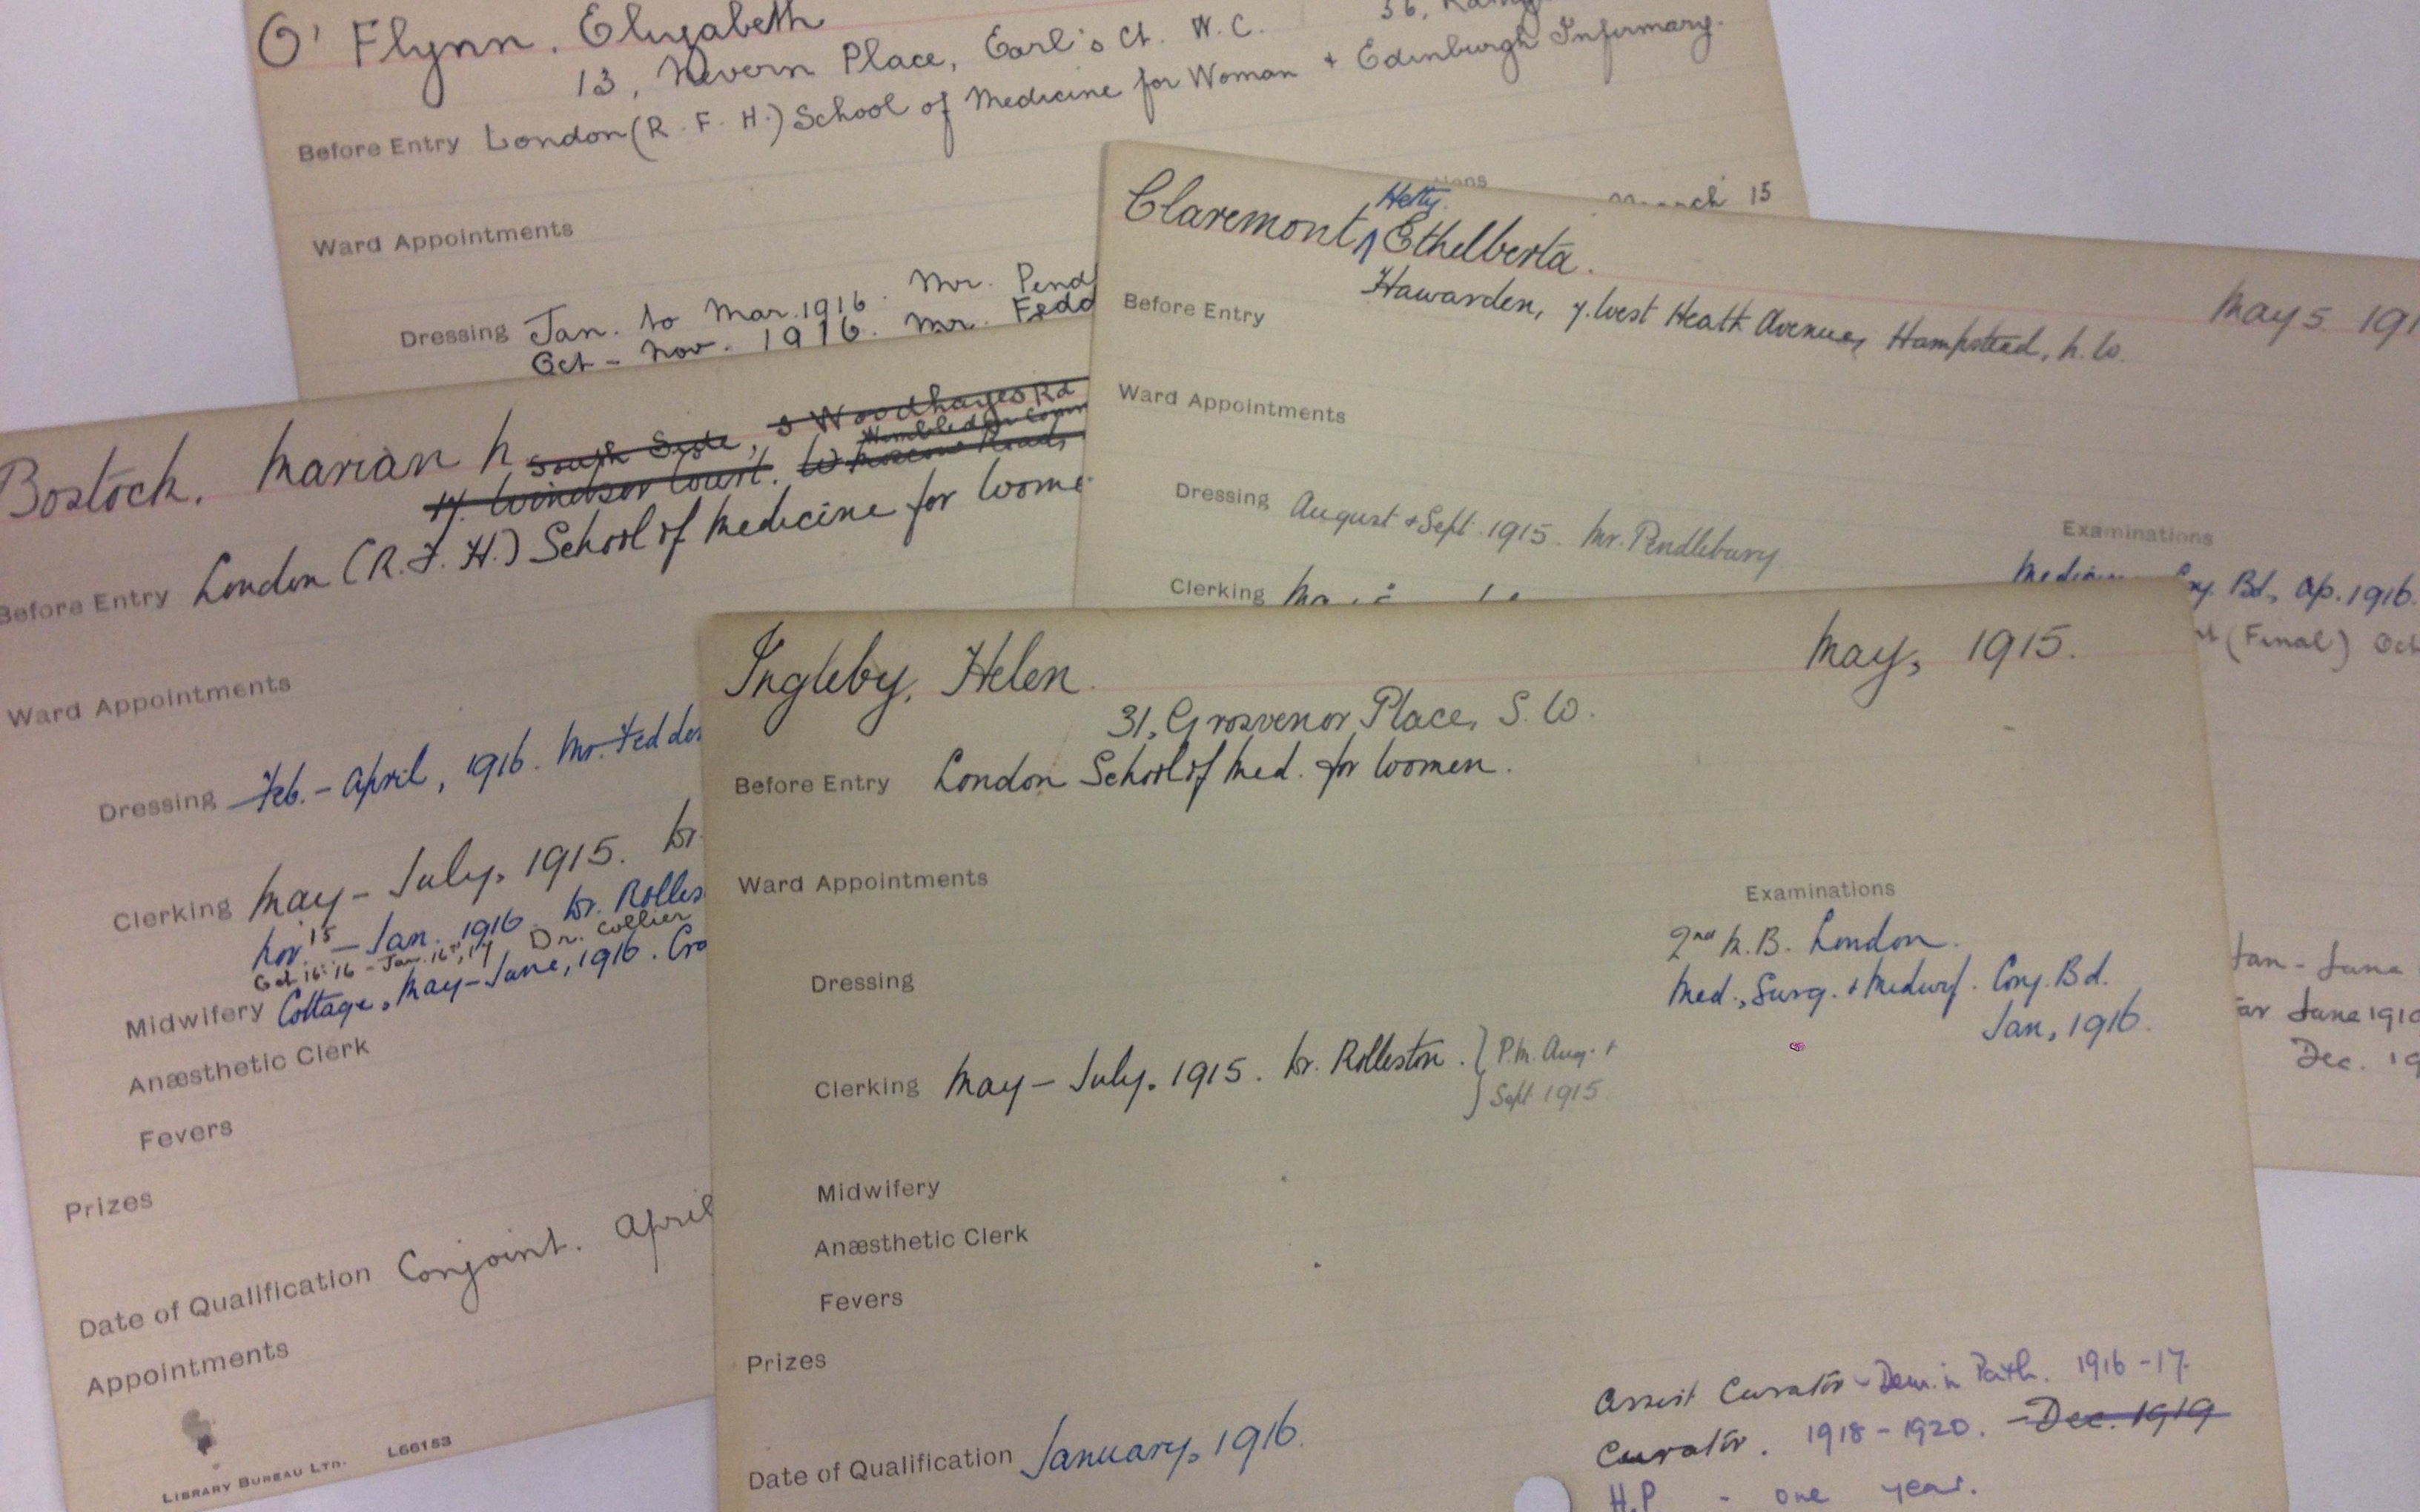 O' Flynn. Elizabeth
13, Nevern Place, Earl's Ct. W.C.
36,
Before Entry London (R. F. H.) School of Medicine for Woman + Edinburgh Infirmary.
Ward Appointments
March 15
Dressing Jan. to Mar. 1916. Mr. Pend
Oct - Nov. 1916. Mr. Fedd
Claremont, Hetty Ethelberta.
Hawarden, 7. West Heath Avenue, Hampstead, N.W.
May 5. 191
Before Entry
Ward Appointments
Dressing August + Sept. 1915. Mr. Pendlebury
Examinations
Clerking
Conj. Bd, Ap. 1916.
(Final) Oct
Jan - June
June 191
Dec. 19
Bostock. Marian N. South Side, 3 Woodhayes Rd
Wimbledon Com
17. Windsor Court. W. Moscow Road,
Before Entry London (R. F. H.) School of Medicine for Wome
Ward Appointments
Dressing Feb. - April, 1916. Mr. Fedden
Clerking May - July. 1915. Dr
Nov. 15 - Jan. 1916. Dr. Rolles
Oct 16th '16 - Jan. 16th, 17 Dr. Collier
Midwifery Cottage. May - June, 1916. Cro
Anæsthetic Clerk
Fevers
Prizes
Date of Qualification Conjoint. April
Appointments
LIBRARY BUREAU LTD. L56153
Ingleby, Helen.
May, 1915.
31, Grosvenor Place, S.W.
Before Entry London School of Med. for Women.
Ward Appointments
Examinations
2nd M.B. London.
Med., Surg. + Midwif. Conj. Bd.
Jan, 1916.
Dressing
Clerking May - July. 1915. Dr. Rolleston. } P.m. Aug. +
Sept 1915.
Midwifery
Anæsthetic Clerk
Fevers
Prizes
Assist Curator - Dem. in Path. 1916-17.
Curator. 1918-1920. - Dec. 1919
H.P - one year.
Date of Qualification January, 1916.